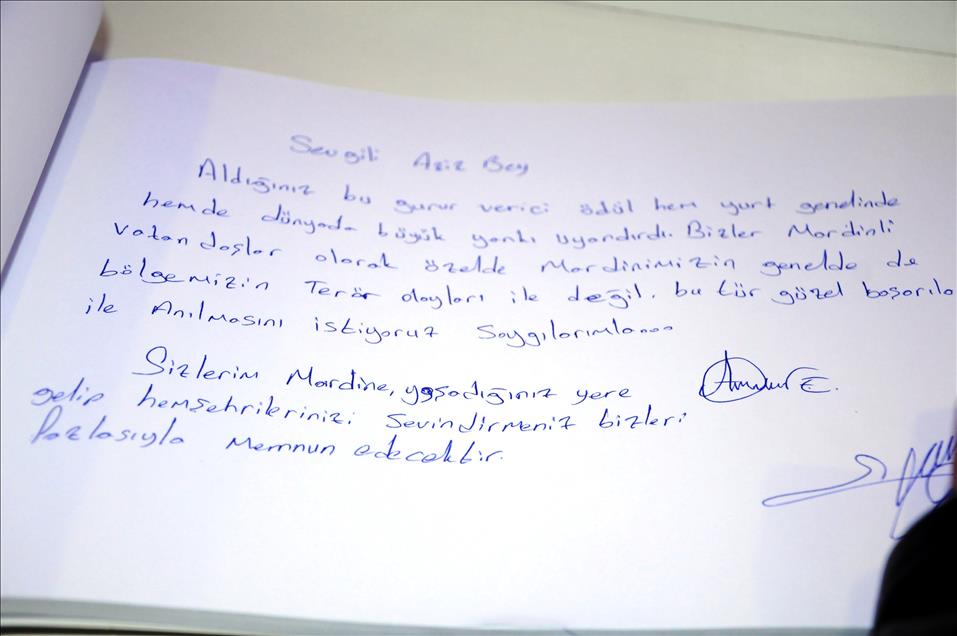 Sevgili Aziz Bey
Aldığınız bu gurur verici ödül hem yurt genelinde
hemde dünyada büyük yankı uyandırdı. Bizler Mardinli
vatandaşlar olarak özelde Mardinimizin genelde de
bölgemizin Terör olayları ile değil, bu tür güzel başarıla
ile Anılmasını istiyoruz Saygılarımla...
Sizlerim Mardine, yaşadığınız yere
gelip hemşehrilerinizi Sevindirmeniz bizleri
fazlasıyla Memnun edecektir.